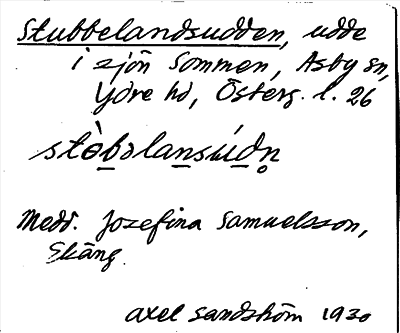 Stubbelandsudden, udde
i sjön Sommen, Asby sn,
Ydre hd, Österg. l. 26
stòb̲əlan̲súd̲n̥
Medd. Jozefina Samuelsson,
Skäng.
Axel Sandström 1930